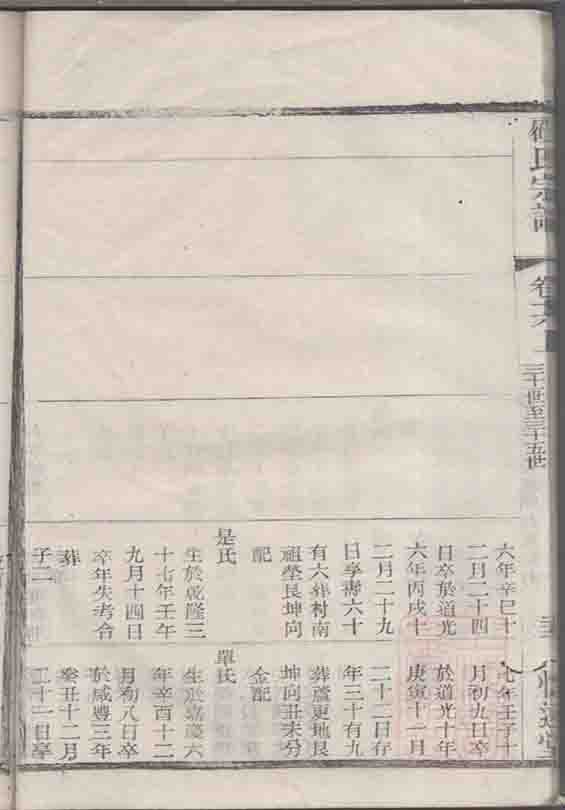 氏宗譜
卷
三十一世至三十五世
堂
六年辛巳十
二月二十四
日卒於道光
六年丙戌十
二月二十九
日享壽六十
有六葬村南
祖塋艮坤向
配
是氏
生於乾隆二
十七年壬午
九月十四日
卒年失考合
葬
子二
七年壬子十
月初九日卒
於道光十年
庚寅十一月
二十二日存
年三十有九
葬蘆更地艮
坤向丑未分
金配
單氏
生於嘉慶六
年辛酉十二
月初八日卒
於咸豐三年
癸丑十二月
二十一日享